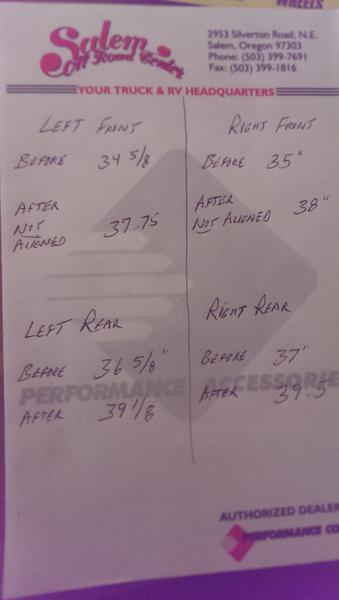 WHEELS
Salem
Off Road Center
2953 Silverton Road, N.E.
Salem, Oregon 97303
Phone: (503) 399-7691
Fax: (503) 399-1816
YOUR TRUCK & RV HEADQUARTERS
LEFT FRONT
BEFORE 34 5/8
AFTER
NOT
ALIGNED 37.75
RIGHT FRONT
BEFORE 35"
AFTER
NOT ALIGNED 38"
LEFT REAR
BEFORE 36 5/8"
AFTER 39 1/8
RIGHT REAR
BEFORE 37"
AFTER 39.5
PERFORMANCE ACCESSORIE
AUTHORIZED DEALER
PERFORMANCE CO